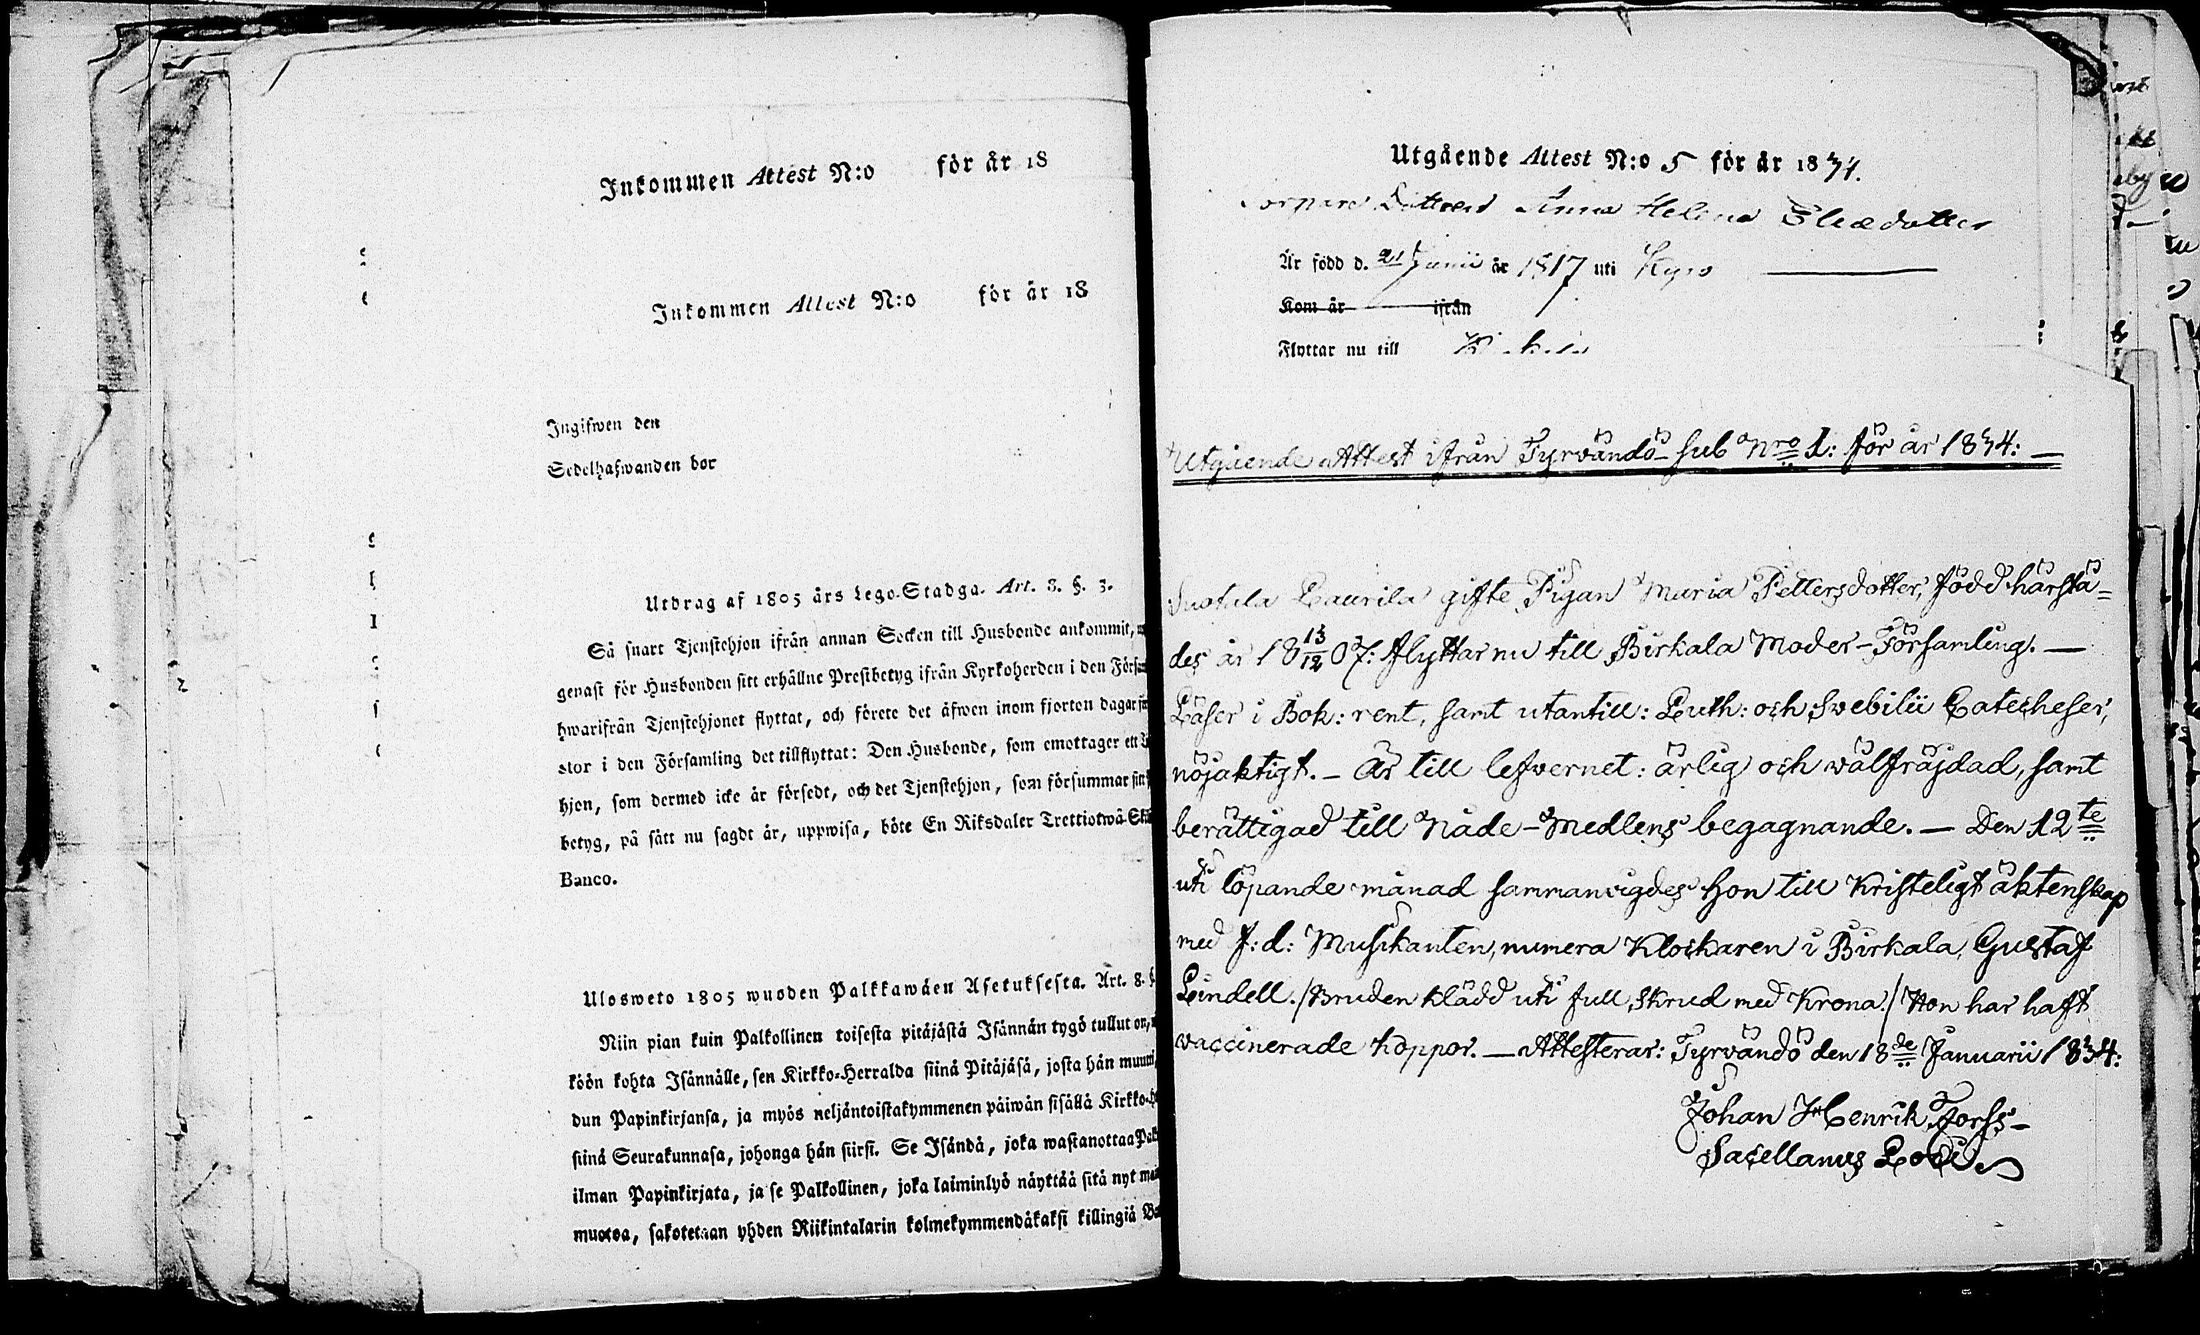 Inkommen Attest N:o för år 18
Inkommen Attest N:o för år 18
Ingifwen den
Sedelhafwanden bor
Utdrag af 1805 års Lego-Stadga. Art. 8. §. 3.
Så snart Tjenstehjon ifrån annan Socken till Husbonde ankommit,
genast för Husbonden sitt erhållne Prestbetyg ifrån Kyrkoherden i den Försam
hwarifrån Tjenstehjonet flyttat, och förete det äfwen inom fjorton dagar
stor i den Församling det tillflyttat: Den Husbonde, som emottager ett
hjon, som dermed icke är försedt, och det Tjenstehjon, som försummar sitt
betyg, på sätt nu sagdt är, uppwisa, böte En Riksdaler Trettiotwå Ski
Banco.
Ulosweto 1805 wuoden Palkkawäen Asetuksesta. Art. 8. §
Niin pian kuin Palkollinen toisesta pitäjästä Isännän tygö tullut on,
köön kohta Isännälle, sen Kirkko-Herralda siinä Pitäjäsä, josta hän muutti,
dun Papinkirjansa, ja myös neljäntoistakymmenen päiwän sisällä Kirkko-H
siinä Seurakunnasa, johonga hän siirsi. Se Isändä, joka wastanottaa Palk
ilman Papinkirjata, ja se Palkollinen, joka laiminlyö näyttää sitä nyt mai
muotoa, sakotetaan yhden Riikintalarin kolmekymmendäkaksi killingiä Ba
Utgående Attest N:o 5 för år 1834.
Torpare Dottren Anna Helena Eliædotter
Är född d. 21 Junii år 1817 uti Kyro
Kom år ifrån
Flyttar nu till
Utgående Attest ifrån Tyrvändö sub Nro 1: för år 1834: —
Suotula Laurila gifte Pigan Maria Pettersdotter, född härstä=
des år 18 13/12 07: flyttar nu till Birkala Moder-Församling. —
Läser i Bok: rent, samt utantill: Luth: och Svebilii Catecheser,
nöjaktigt. — Är till lefvernet: ärlig och välfräjdad, samt
berättigad till Nåde-Medlens begagnande. — Den 12te
uti löpande månad sammanvigdes hon till Kristeligt äktenskap
med f: d: Musikanten, numera Klockaren i Birkala, Gustaf
Lindell. /Bruden klädd uti full skrud med Krona./ Hon har haft
vaccinerade koppor. — Attesterar: Tyrvändö den 18de Januarii 1834:
Johan Henrik Forss —
Sacellanus Loci